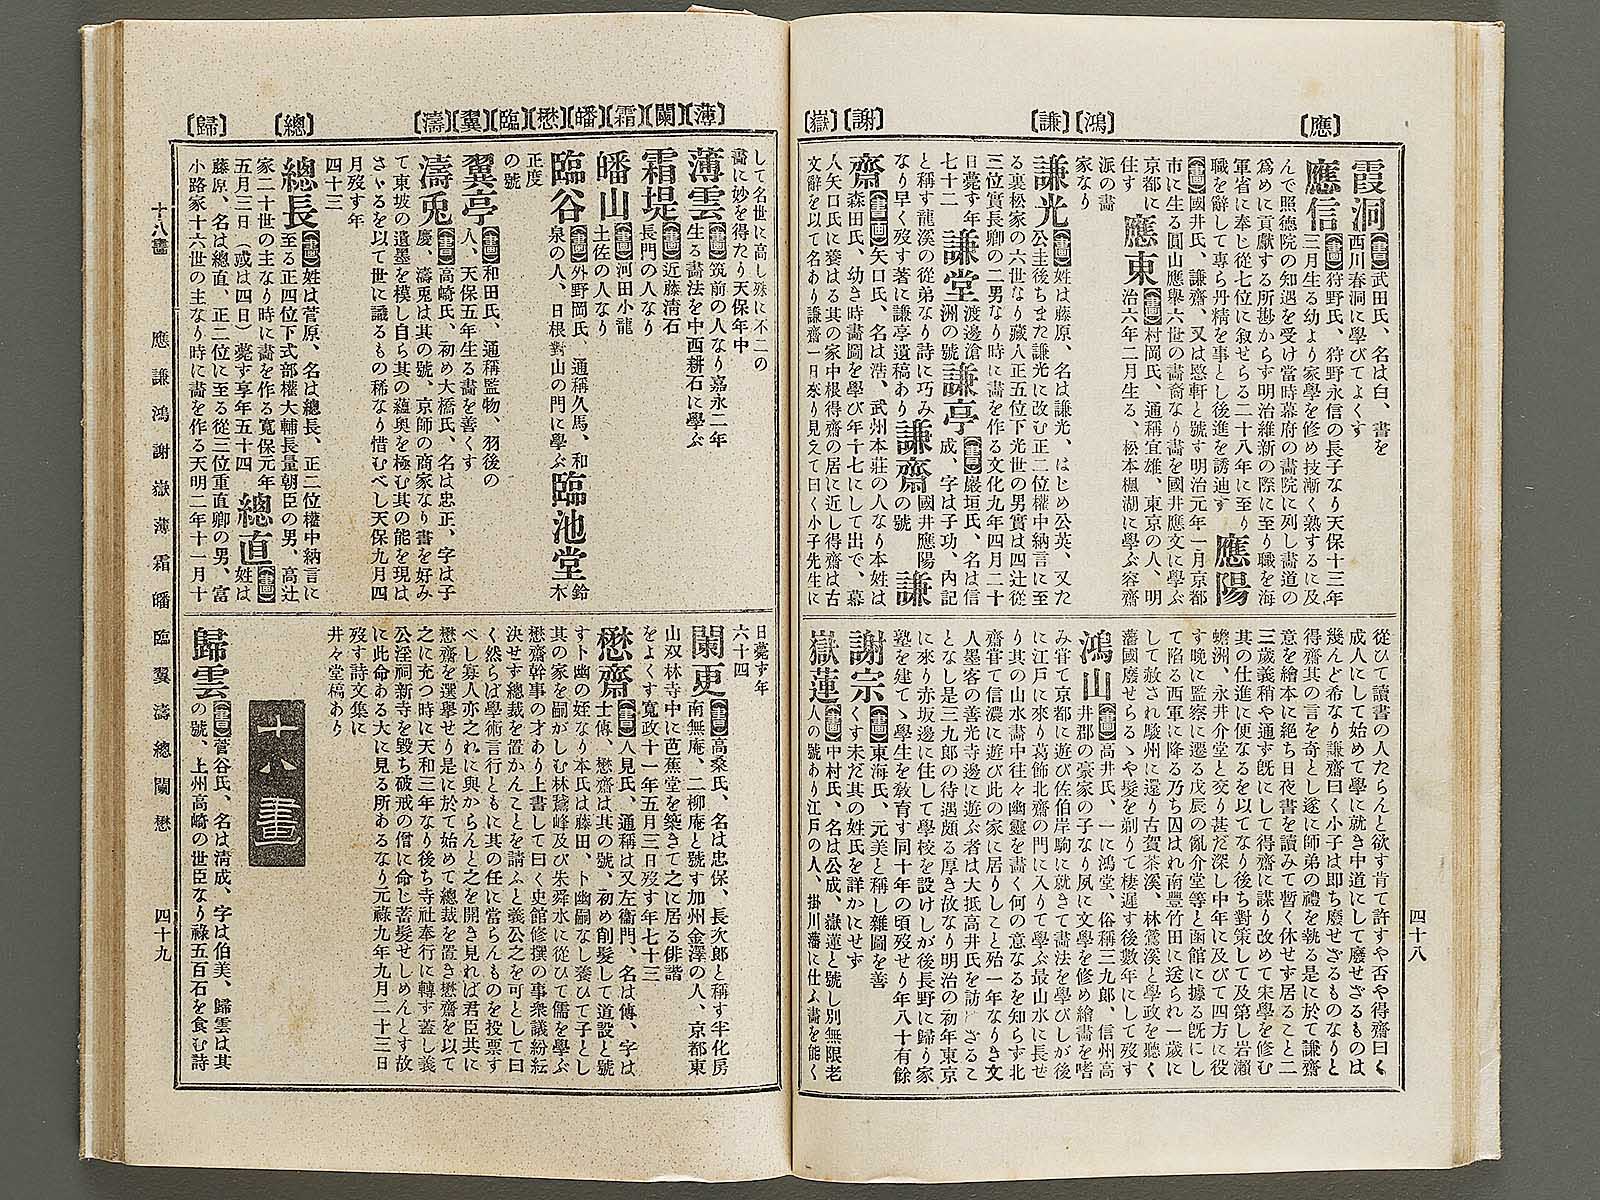 【應】
【鴻】【謙】
【謝】【嶽】
霞洞【書】武田氏、名は白、書を
西川春洞に學びてよくす
應信【畫】狩野氏、狩野永信の長子なり天保十三年
三月生る幼より家學を修め技漸く熟するに及
んで照德院の知遇を受け當時幕府の畫院に列し畫道の
爲めに貢獻する所尠からず明治維新の際に至り職を海
軍省に奉じ從七位に叙せらる二十八年に至り
職を辭して專ら丹精を事とし後進を誘迪す
應陽
【畫】國井氏、謙齋、又は㤙軒と號す明治元年一月京都
市に生る圓山應擧六世の畫裔なり畫を國井應文に學ぶ
京都に
住す
應東【畫】村岡氏、通稱宜雄、東京の人、明
治六年二月生る、松本楓湖に學ぶ容齋
派の畫
家なり
謙光【書畫】姓は藤原、名は謙光、はじめ公英、又た
公圭後ちまた謙光に改む正二位權中納言に至
る裏松家の六世なり藏人正五位下光世の男實は四辻從
三位實長卿の二男なり時に畫を作る文化九年四月二十
日薨す年
七十二
謙堂
渡邊滄
洲の號
謙亭【書】嚴垣氏、名は信
成、字は子功、内記
と稱す龍溪の從弟なり詩に巧み
なり早く歿す著に謙亭遺稿あり
謙齋
國井應陽
の號
謙
齋【書畫】矢口氏、名は浩、武州本莊の人なり本姓は
森田氏、幼き時畫圖を學び年千七にして出で、幕
人矢口氏に養はる其の家中根得齋の居に近し得齋は古
文辭を以て名あり謙齋一日來り見えて曰く小子先生に
從ひて讀書の人たらんと欲す肯て許すや否や得齋曰く
成人にして始めて學に就き中道にして廢せざるものは
幾んど希なり謙齋曰く小子は即ち廢せざるものなりと
得齋其の言を奇とし遂に師弟の禮を執る是に於て謙齋
意を繪本に絶ち日夜書を讀みて暫く休せす居ること二
三歲義稍や通す旣にして得齋に謀り改めて宋學を修む
其の仕進に便なるを以てなり後ち對策して及第し岩瀬
蟾洲、永井介堂と交り甚だ深し中年に及びて四方に役
す晩に監察に遷る戊辰の亂介堂等と函館に據る旣にし
て陷る西軍に降る乃ち囚はれ南豐竹田に送られ一歲に
して赦され駿州に還り古賀茶溪、林鶯溪と學政を聽く
藩國廢せらるゝや髮を剃りて棲遲す後數年にして歿す
鴻山【書畫】高井氏、一に鴻堂、俗稱三九郎、信州高
井郡の豪家の子なり夙に文學を修め繪畫を嗜
み甞て京都に遊び佐伯岸駒に就きて畫法を學びしが後
に江戸に來り葛飾北齋の門に入りて學ぶ最山水に長せ
り其の山水畫中往々幽靈を畫く何の意なるを知らす北
齋甞て信濃に遊び此の家に居りしこと殆一年なりき文
人墨客の善光寺邊に遊ぶ者は大抵高井氏を訪はざるこ
となし是三九郎の待遇頗る厚き故なり明治の初年東京
に來り赤坂邊に住して學校を設けしが後長野に歸り家
塾を建てゝ學生を敎育す同十年の頃歿せり年八十有餘
謝宗【書畫】東海氏、元美と稱し雜圖を善
くす未だ其の姓氏を詳かにせす
嶽蓮【書畫】中村氏、名は公成、嶽蓮と號し別無限老
人の號あり江戸の人、掛川藩に仕ふ畫を能く
四十八
【薄】【闌】【霜】【皤】【懋】【臨】【翼】【濤】
【總】
【歸】
して名世に高し殊に不二の
畵に妙を得たり天保年中
薄雲【書畫】筑前の人なり嘉永二年
生る書法を中西耕石に學ぶ
霜堤【書畫】近藤清石
長門の人なり
皤山【書畫】河田小龍
土佐の人なり
臨谷【書畫】外野岡氏、通稱久馬、和
泉の人、日根對山の門に學ぶ
臨池堂
鈴
木
正度
の號
翼亭【書畫】和田氏、通稱監物、羽後の
人、天保五年生る畫を善くす
濤兎【書畫】高崎氏、初め大橋氏、名は忠正、字は子
慶、濤兎は其の號、京師の商家なり書を好み
て東坡の遺墨を模し自ら其の蘊奧を極む其の能を現は
さゝるを以て世に識るもの稀なり惜むべし天保九月四
月歿す年
四十三
總長【書畫】姓は菅原、名は總長、正二位權中納言に
至る正四位下式部權大輔長量朝臣の男、高辻
家二十世の主なり時に畵を作る寬保元年
五月三日(或は四日)薨す享年五十四
總直【書畫】姓は
藤原、名は總直、正二位に至る從三位重直卿の男、富
小路家十六世の主なり時に畵を作る天明二年十一月十
日薨す年
六十四
闌更【書】高桑氏、名は忠保、長次郎と稱す半化房
南無庵、二柳庵と號す加州金澤の人、京都東
山双林寺中に芭蕉堂を築きて之に居る俳諧
をよくす寬政十一年五月三日歿す年七十三
懋齋【書】人見氏、通稱は又左衞門、名は傳、字は
士傳、懋齋は其の號、初め剃髮して道設と號
す卜幽の姪なり本氏は藤田、卜幽嗣なし養ひて子とし
其の家を嗣がしむ林鵞峰及び朱舜水に從ひて儒を學ぶ
懋齋幹事の才あり上書して曰く史館修撰の事衆議紛紜
決せす總裁を置かんことを請ふと義公之を可として曰
く然らば學術言行ともに其の任に當らんものを投票す
べし寡人亦之れに與からんと之を開き見れば君臣共に
懋齋を選擧せり是に於て始めて總裁を置き懋齋を以て
之に充つ時に天和三年なり後ち寺社奉行に轉す蓋し義
公淫祠新寺を毀ち破戒の僧に命じ蓄髮せしめんとす故
に此命ある大に見る所あるなり元祿九年九月二十三日
歿す詩文集に
井々堂稿あり
十八畫
歸雲【書畫】菅谷氏、名は淸成、字は伯美、歸雲は其
の號、上州高崎の世臣なり祿五百石を食む詩
十八畫　應謙鴻謝嶽薄霜皤臨翼濤總闌懋　四十九